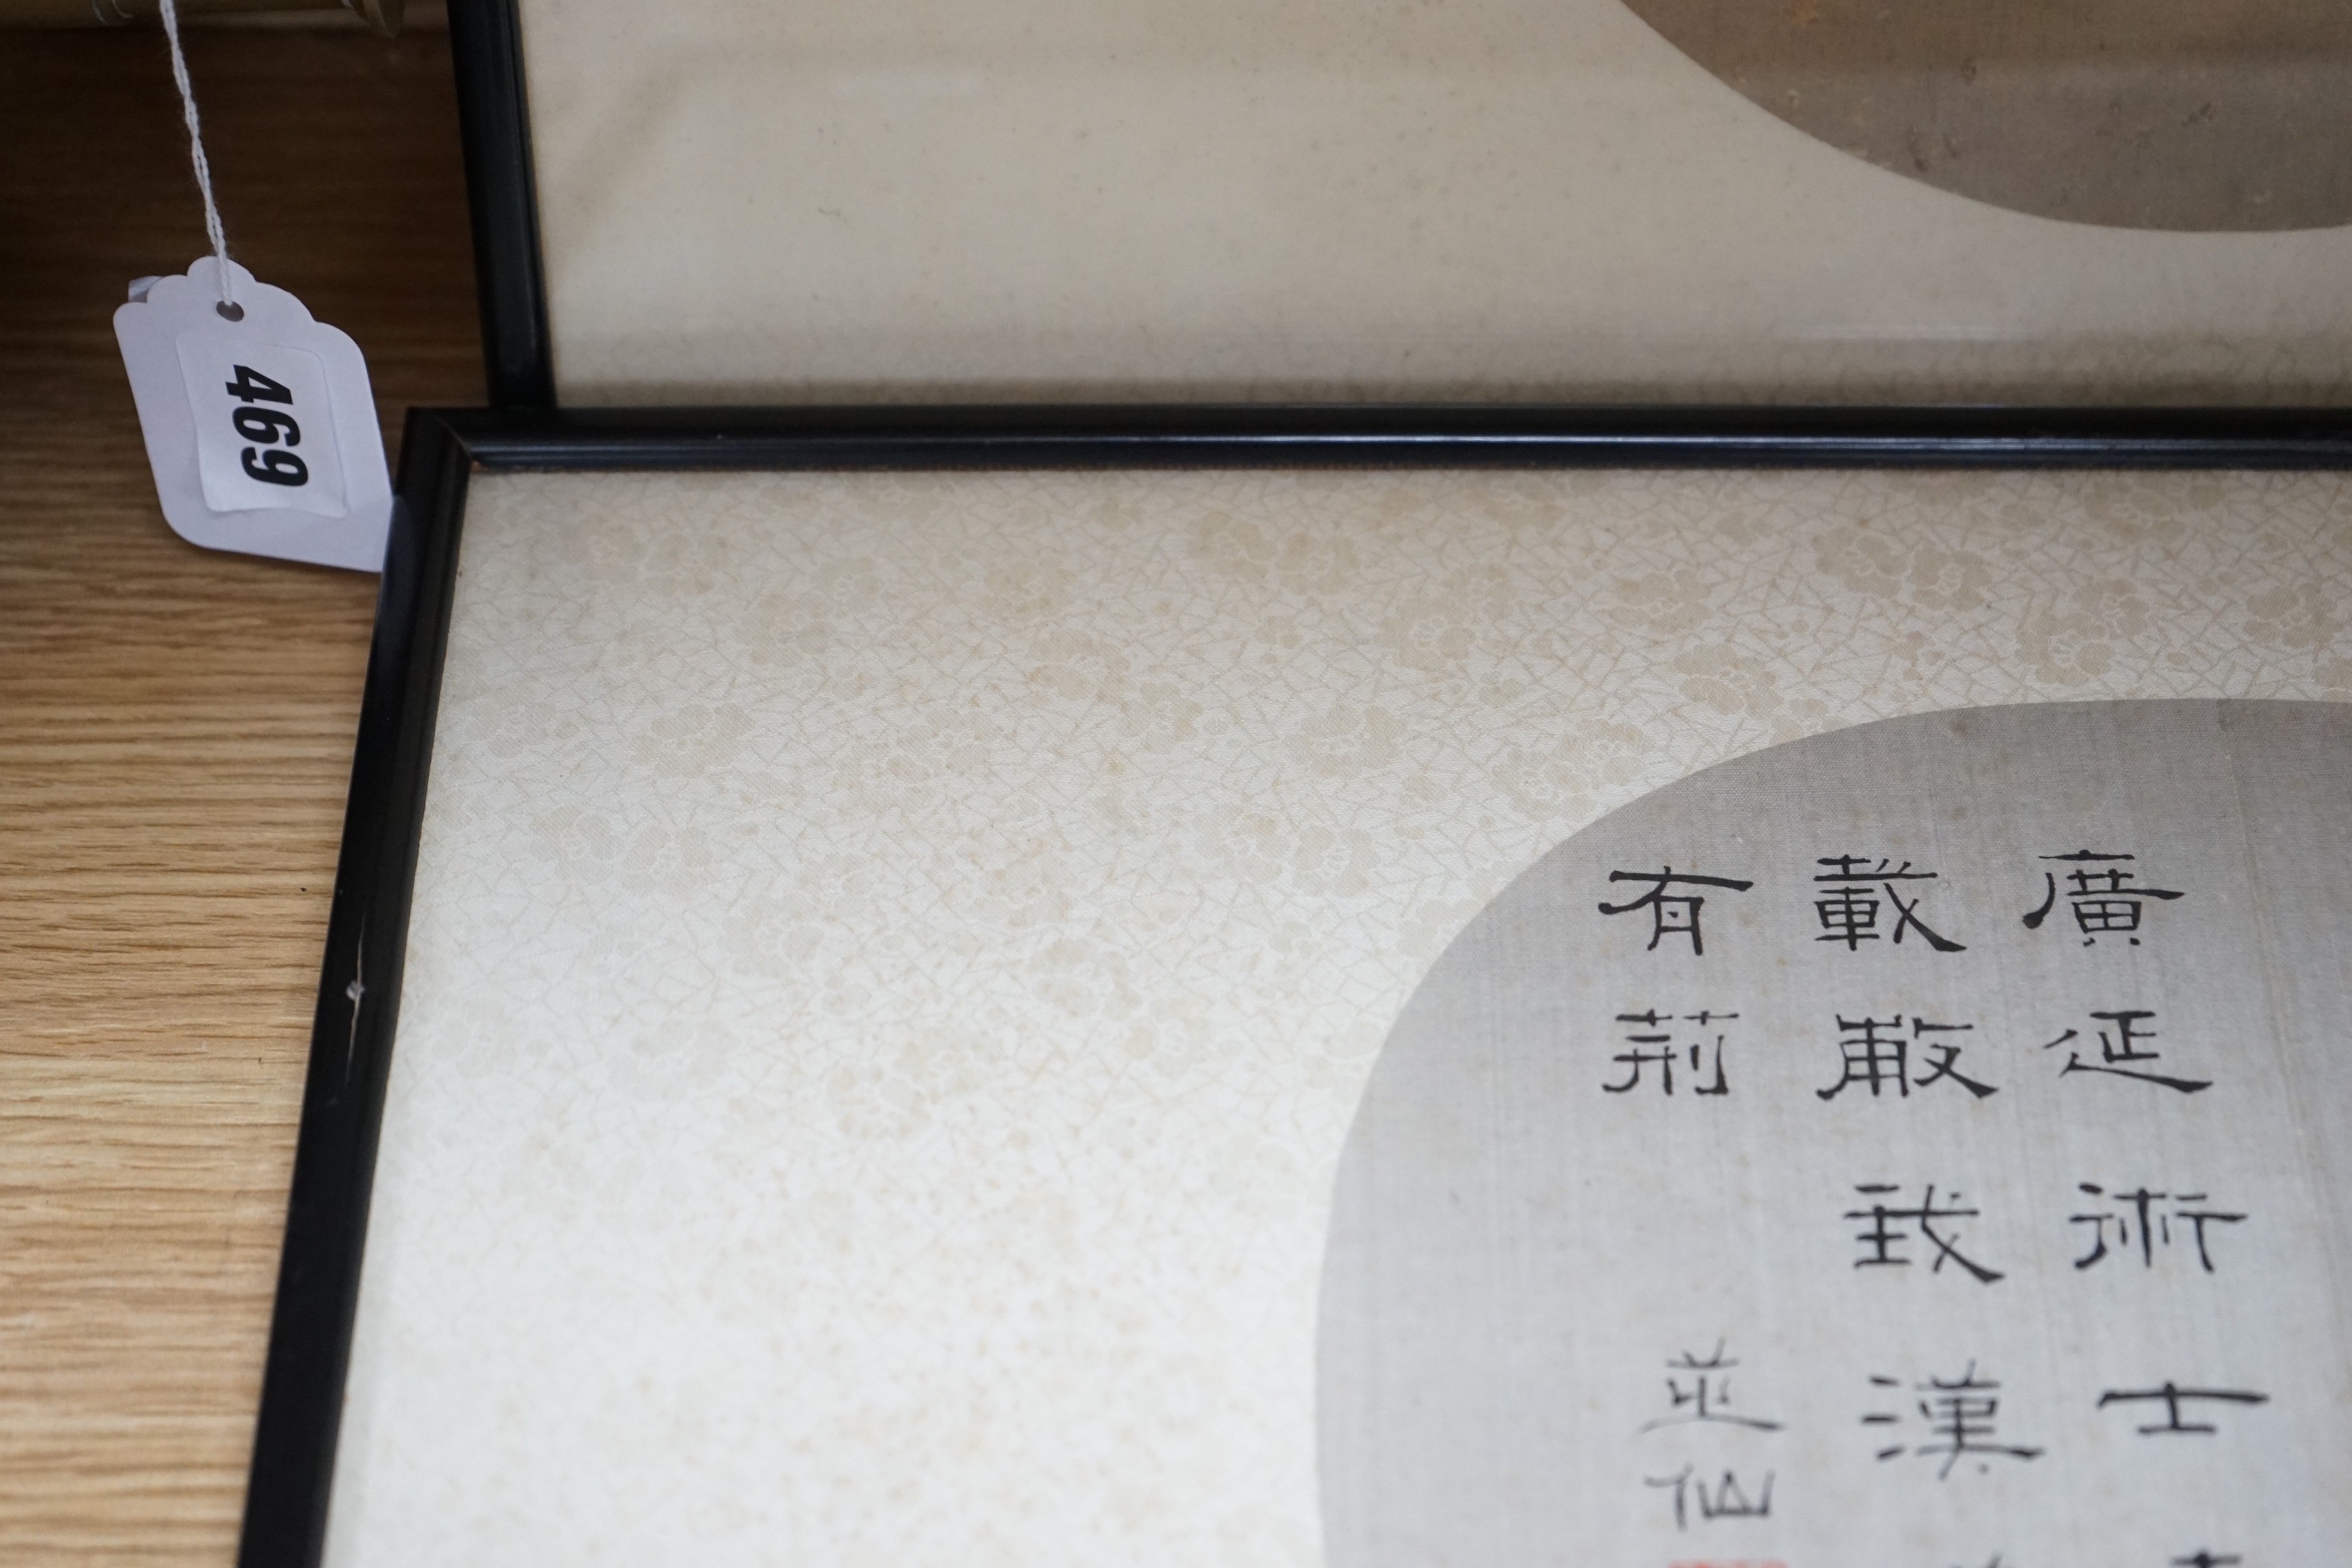 469
廣延術士
載 我漢
有荊
並仙